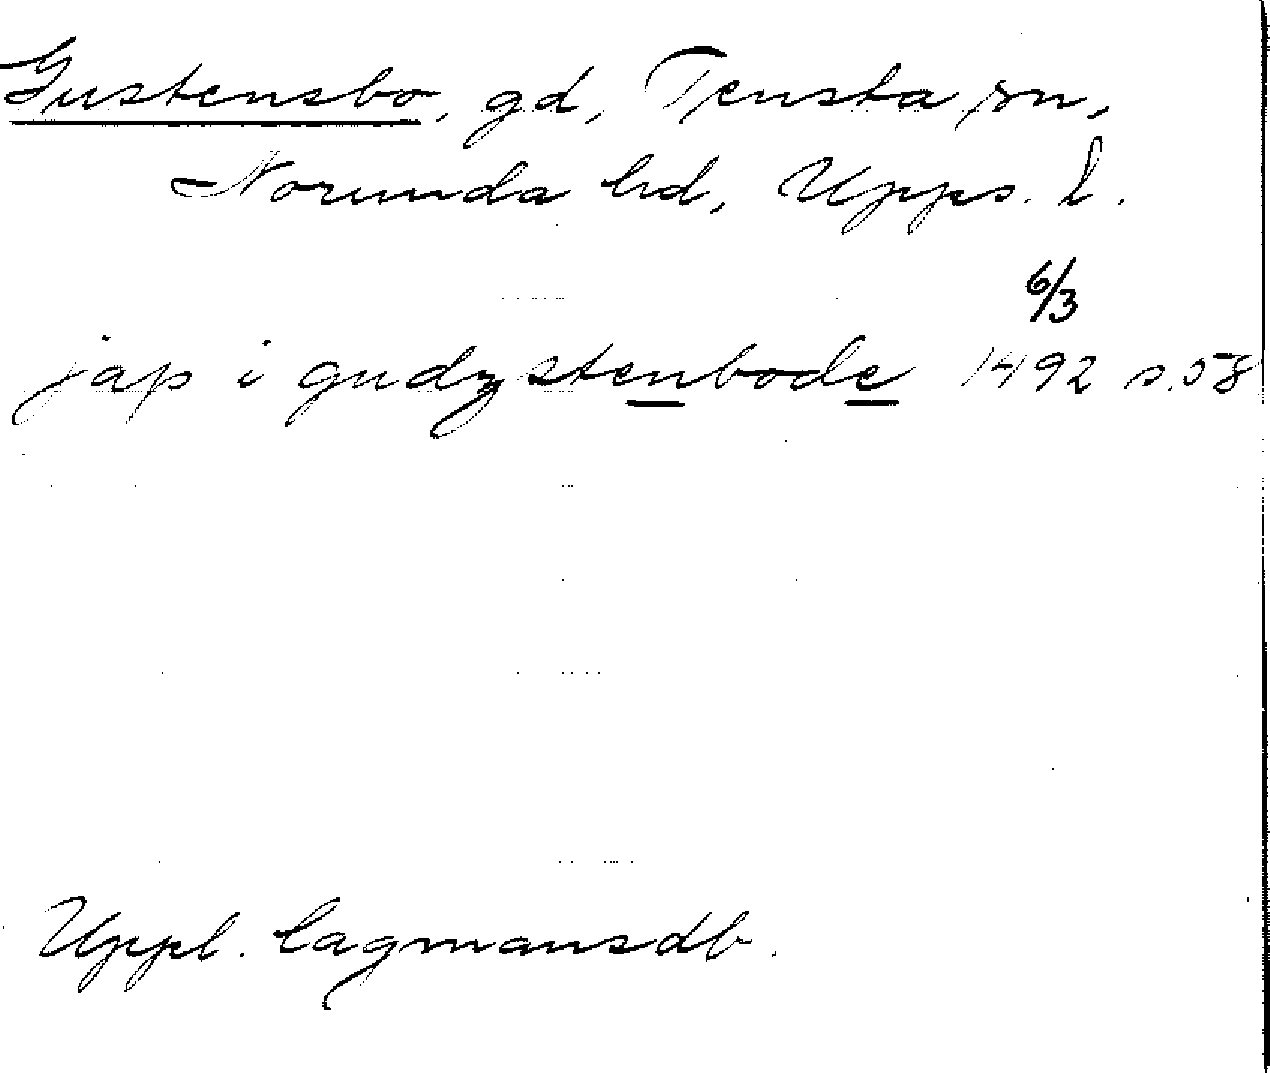 Gustensbo, gd, Tensta sn,
Norunda hd, Upps. l.
6/3
jap i gudzstenbode 1492 s. 58
Uppl. lagmansdb.